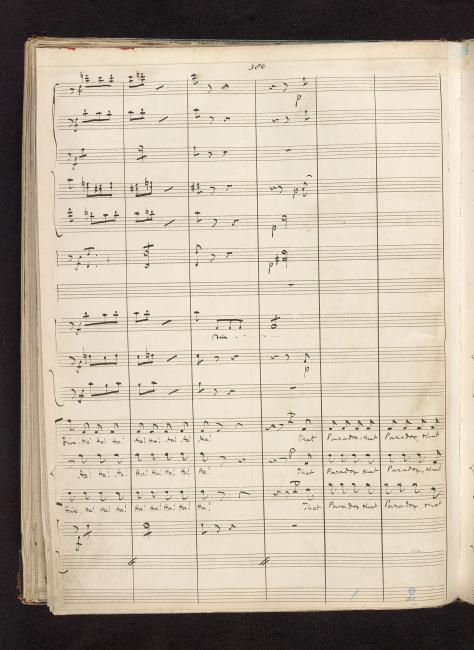 380
f
f
f
p
p
f
p
f
p
f
Five! Ha! Ha! Ha! Ha! Ha! Ha! Ha! Ha! That Paradox, that Paradox, that
Ha! Ha! Ha! Ha! Ha! Ha! Ha! Ha! That Paradox that Paradox, that
Five, Ha! Ha! Ha! Ha! Ha! Ha! Ha! Ha! That Paradox that Paradox, that
f
1 2